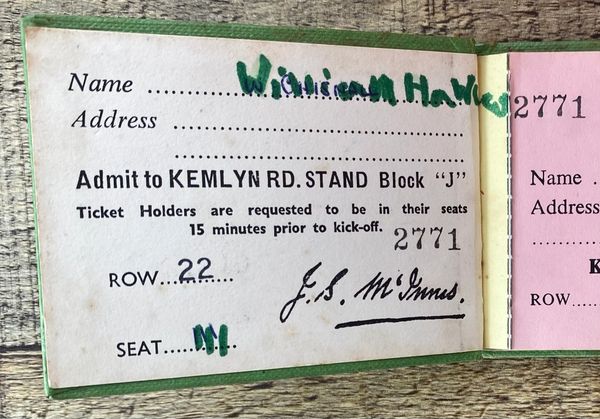 Name .......... William Haw
Address ..........
Admit to KEMLYN RD. STAND Block "J"
Ticket Holders are requested to be in their seats
15 minutes prior to kick-off.
2771
ROW...22.......
J. S. McInnes.
SEAT.....M.......
2771
Name .
Address
K
ROW....